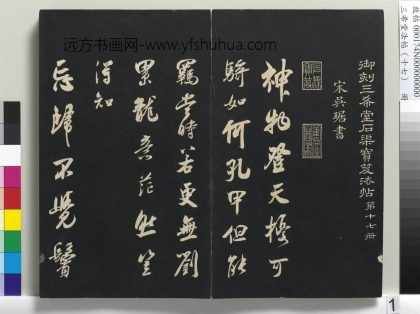 远方书画网-www.yfshuhua.com
故帖 000174N00000000
三希堂法帖（十七） 册
御刻三希堂石渠寶笈法帖 第十七册
宋吳琚書
神物登天擾可
騎如何孔甲但能
羈當時若更無劉
累龍意茫然豈
得知
忘歸不覺鬢
1